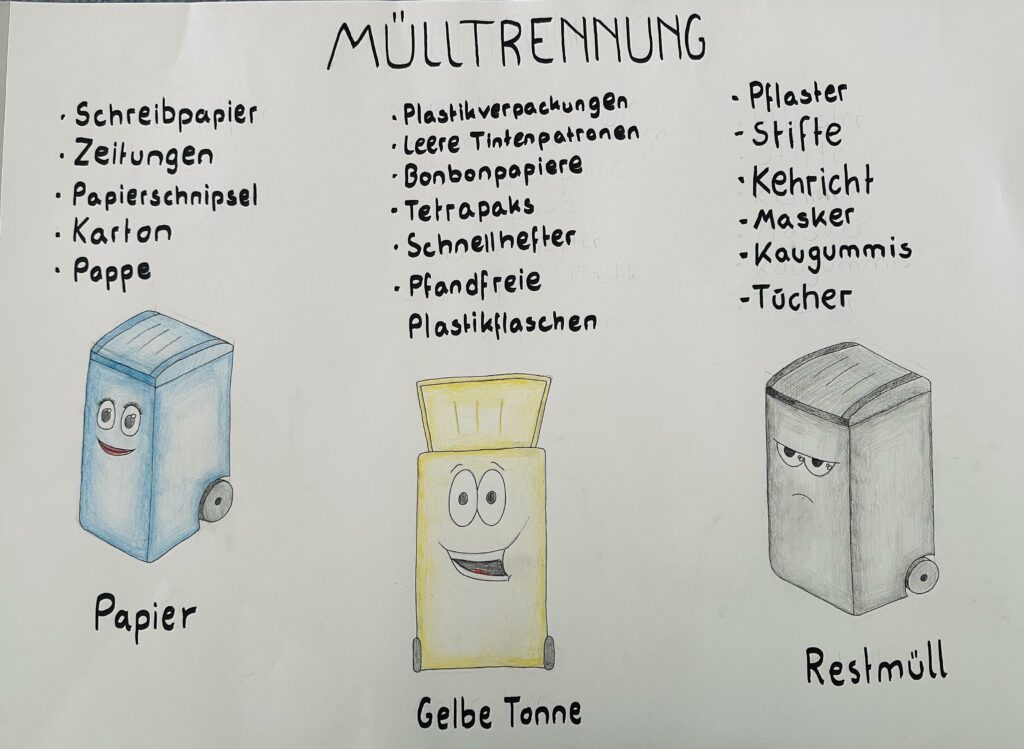 MÜLLTRENNUNG
· Schreibpapier
· Zeitungen
· Papierschnipsel
· Karton
· Pappe
Papier
· Plastikverpackungen
· Leere Tintenpatronen
· Bonbonpapiere
· Tetrapaks
· Schnellhefter
· Pfandfreie
Plastikflaschen
Gelbe Tonne
· Pflaster
- Stifte
· Kehricht
- Masker
- Kaugummis
- Tücher
Restmüll